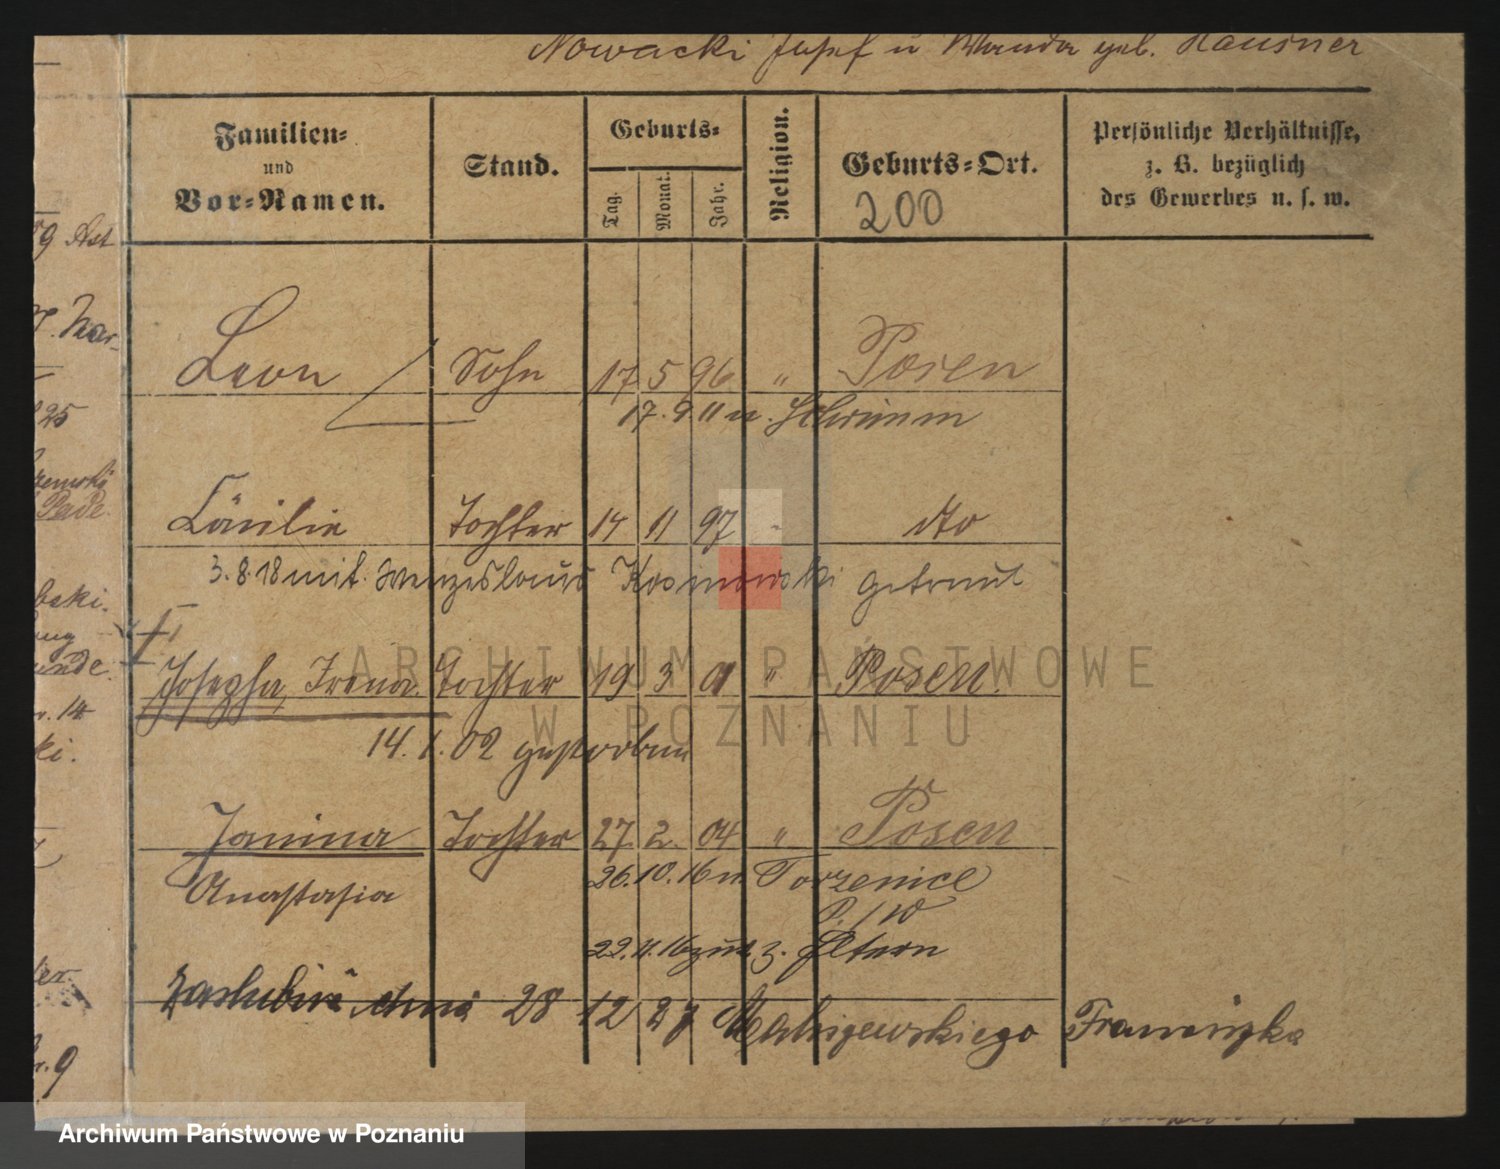 Nowacki Josef u Wanda geb. Hausner
Familien=
und
Vor=Namen.
Stand.
Geburts=
Tag.
Monat.
Jahr.
Religion.
Geburts=Ort.
200
Persönliche Verhältnisse,
z. B. bezüglich
des Gewerbes u. s. w.
Leon Sohn 17 5 96 " Posen
17. 9. 11 n. Schrimm
Cäcilie Tochter 14 11 97 " dto
3. 8. 18 mit Wenzeslaus Kosinowski getraut
Josepha Irena Tochter 19 3 01 " Posen
14. 1. 02 gestorben
Janina Tochter 27. 2. 04 " Posen
Anastasia 26. 10. 16 n. Torzenice
22. 11. 16 zur. z. Eltern
Zaślubiła dnia 28 12 27 Franciszka
9 Ast
25
Pade.
14
ki.
9
ARCHIWUM PAŃSTWOWE
W POZNANIU
Archiwum Państwowe w Poznaniu